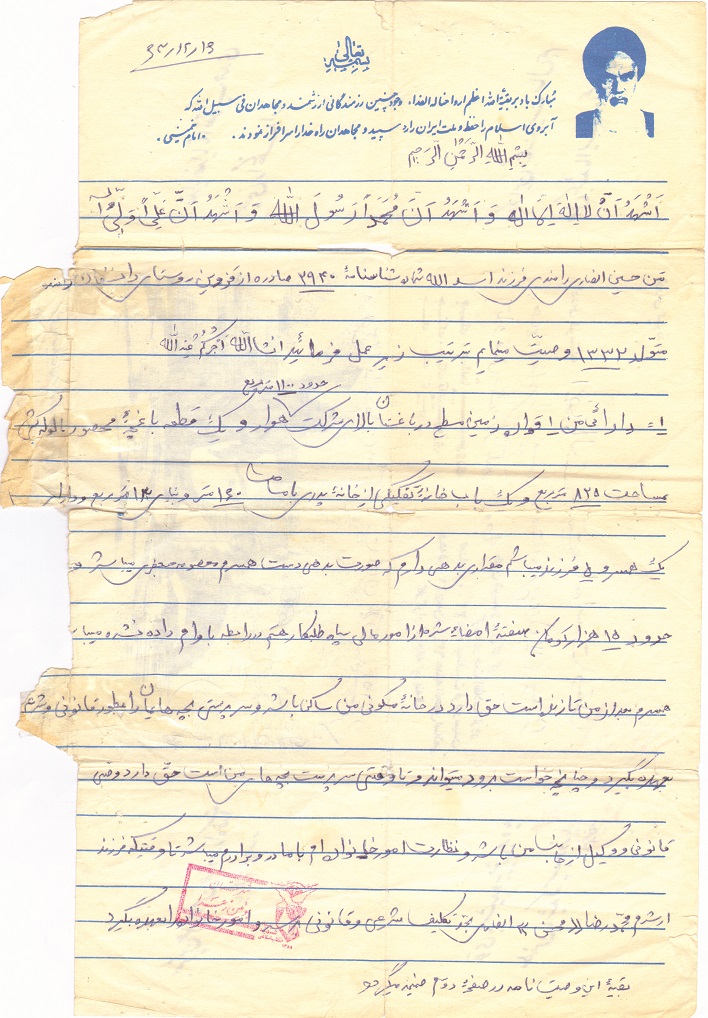 ۶۳/۱۲/۱۳
بسمه تعالی
مبارک باد بر بقیة الله اعظم ارواحنا له الفداء، وجود چنین رزمندگانی ارزشمند و مجاهدان فی سبیل الله که
آبروی اسلام را حفظ و ملت ایران را روسپید و مجاهدان راه خدا را سرافراز نمودند. «امام خمینی»
بِسْمِ اللهِ الرَّحْمنِ الرَّحیم
اَشْهَدُ اَنْ لا اِلهَ اِلَّا الله وَ اَشْهَدُ اَنَّ مُحَمَّداً رَسُولَ الله وَ اَشْهَدُ اَنَّ عَلِیّاً وَلِیُّ الله
من حسین انصاری رامندی فرزند اسدالله شماره شناسنامهٔ ۳۹۴۰ صادره از قزوین روستای
متولد ۱۳۳۲ وصیت مینمایم بترتیب زیر عمل فرمائید انشاالله اَجْرُکُمْ عِنْدَ الله
حدود ۱۱۰۰ متر مربع
۱= دارائی من زمین مسطح در باغستان بالای شرکت و یک قطعه باغچهٔ محصور
بمساحت ۸۲۵ متر مربع و یک باب خانهٔ از خانهٔ پدری با مساحت ۱۶۰ متر و بنای متر مربع و دارای
یک همسر و فرزند میباشم مقداری بدهی دارم که صورت بدهی دست همسرم معصومه میباشد و
حدود ۱۵ هزار تومان سفتهٔ امضاء شده از امور مالی سپاه طلبکار هستم در رابطه با وام داده شده
همسرم بعد از من تا زنده است حق دارد در خانهٔ مسکونی من ساکن باشد و سرپرستی بچه هایمان را بطور قانونی و شرعی
بعهده بگیرد و چنانچه خواست برود میتواند و تا وقتی سرپرست بچه های من است حق دارد وصی
قانونی و وکیل از جانب من باشد و نظارت امور خانواده ام با مادر و برادرم میباشد تا وقتیکه فرزند
ارشدم محمد رضا بحد تکلیف شرعی و قانونی برسد و امور خانواده را بعهده بگیرد
بقیهٔ این وصیت نامه در صفحهٔ دوم ضمیمه میگردد